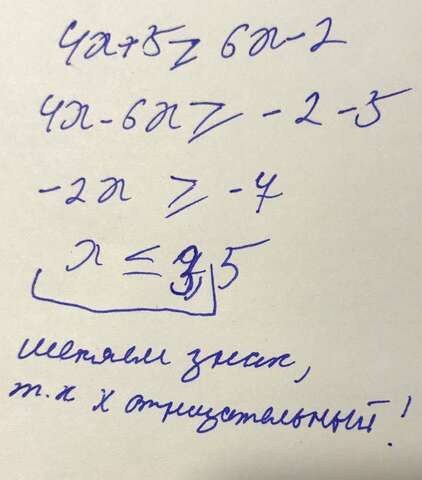 4x+5 ≥ 6x-2
4x-6x ≥ -2-5
-2x ≥ -7
x ≤ 3,5
меняем знак,
т.к х отрицательный!